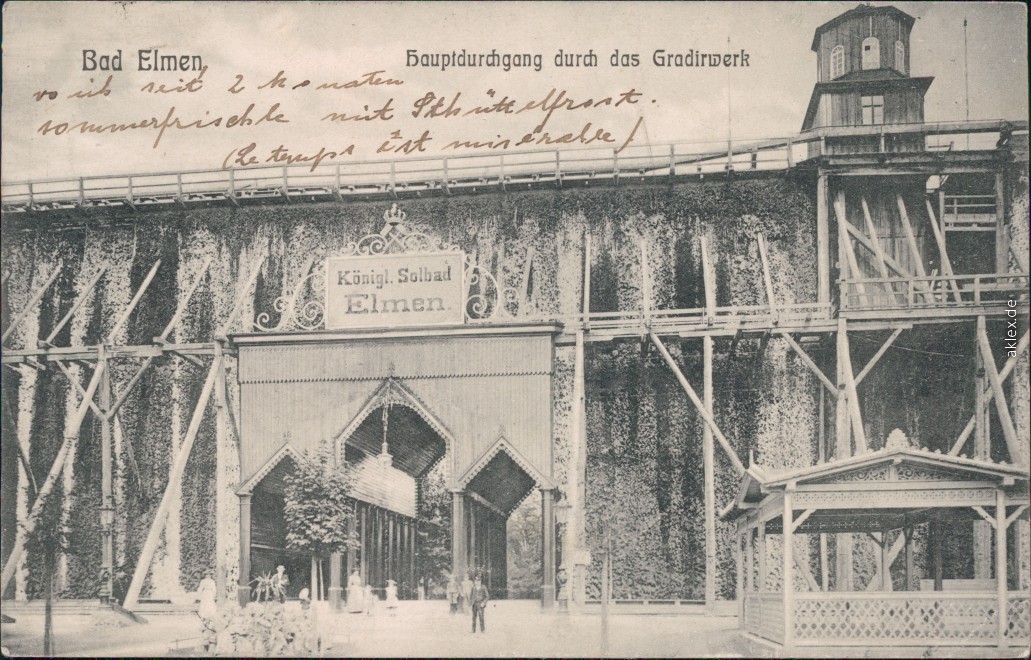 Bad Elmen
Hauptdurchgang durch das Gradirwerk
wo ich seit 2 Monaten
sommerfrischle mit Schüttelfrost.
(Le temps ist misérable)
Königl. Solbad
Elmen.
aklex.de